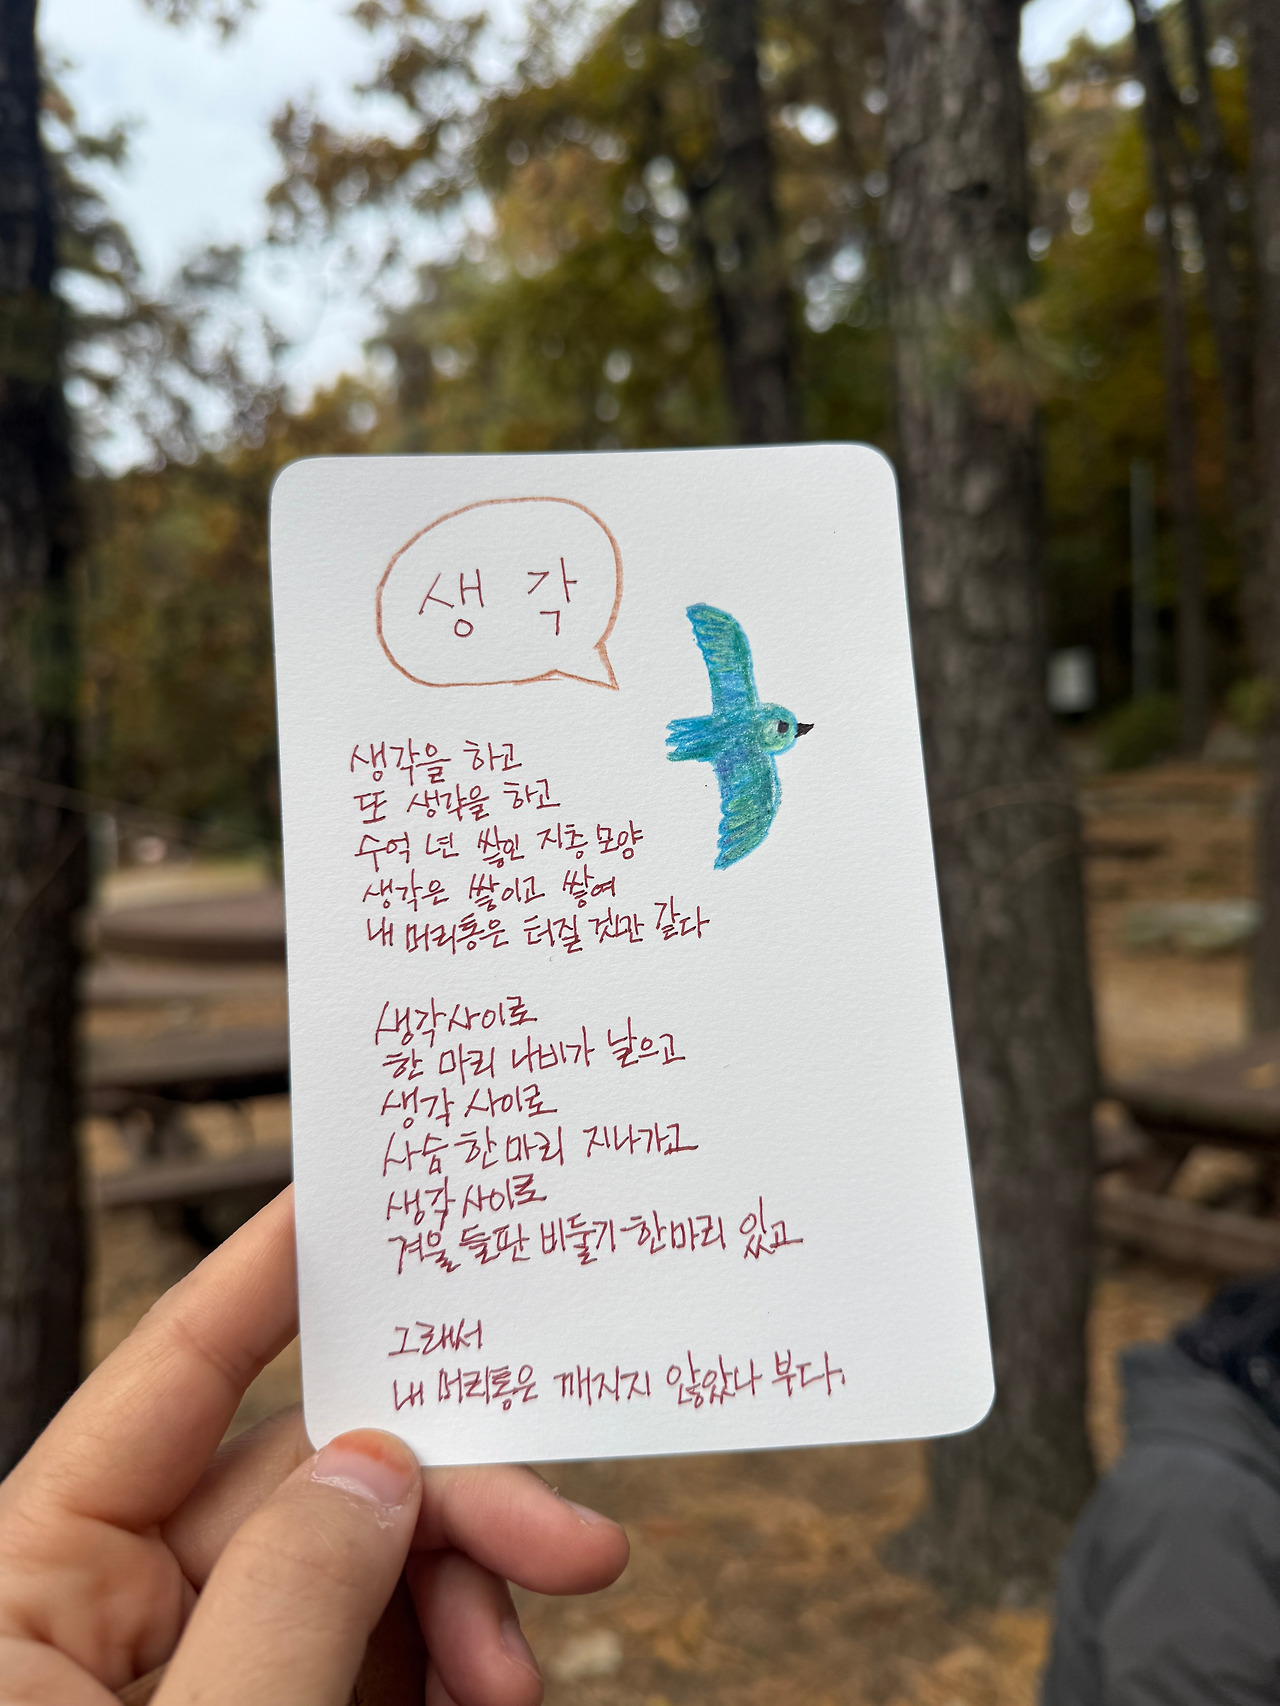 생각
생각을 하고
또 생각을 하고
수억 년 쌓인 지층 모양
생각은 쌓이고 쌓여
내 머리통은 터질 것만 같다
생각 사이로
한 마리 나비가 날으고
생각 사이로
사슴 한 마리 지나가고
생각 사이로
겨울 들판 비둘기 한 마리 있고
그래서
내 머리통은 깨지지 않았나 부다.